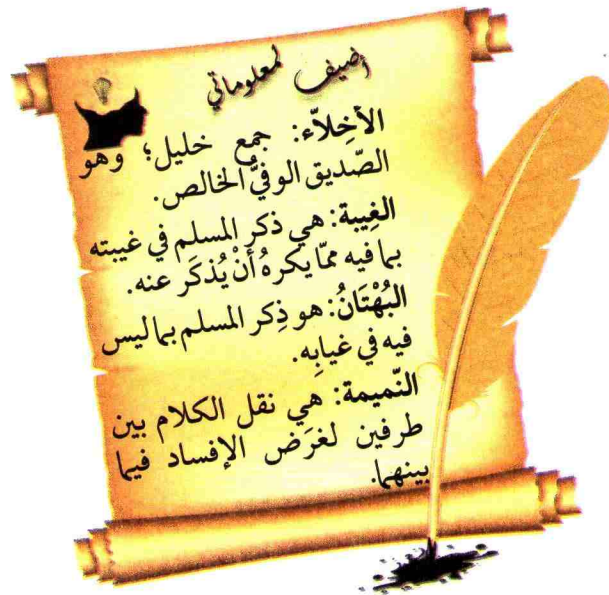 أضيف لمعلوماتي
الأخِلاّء: جمع خليل؛ وهو
الصّديق الوفيُّ الخالص.
الغِيبة: هي ذكر المسلم في غيبته
بما فيه ممّا يكرهُ أَنْ يُذكَر عنه.
البُهْتَانُ: هو ذِكر المسلم بما ليس
فيه في غيابِه.
النّميمة: هي نقل الكلام بين
طرفين لغرَض الإفساد فيما
بينهما.